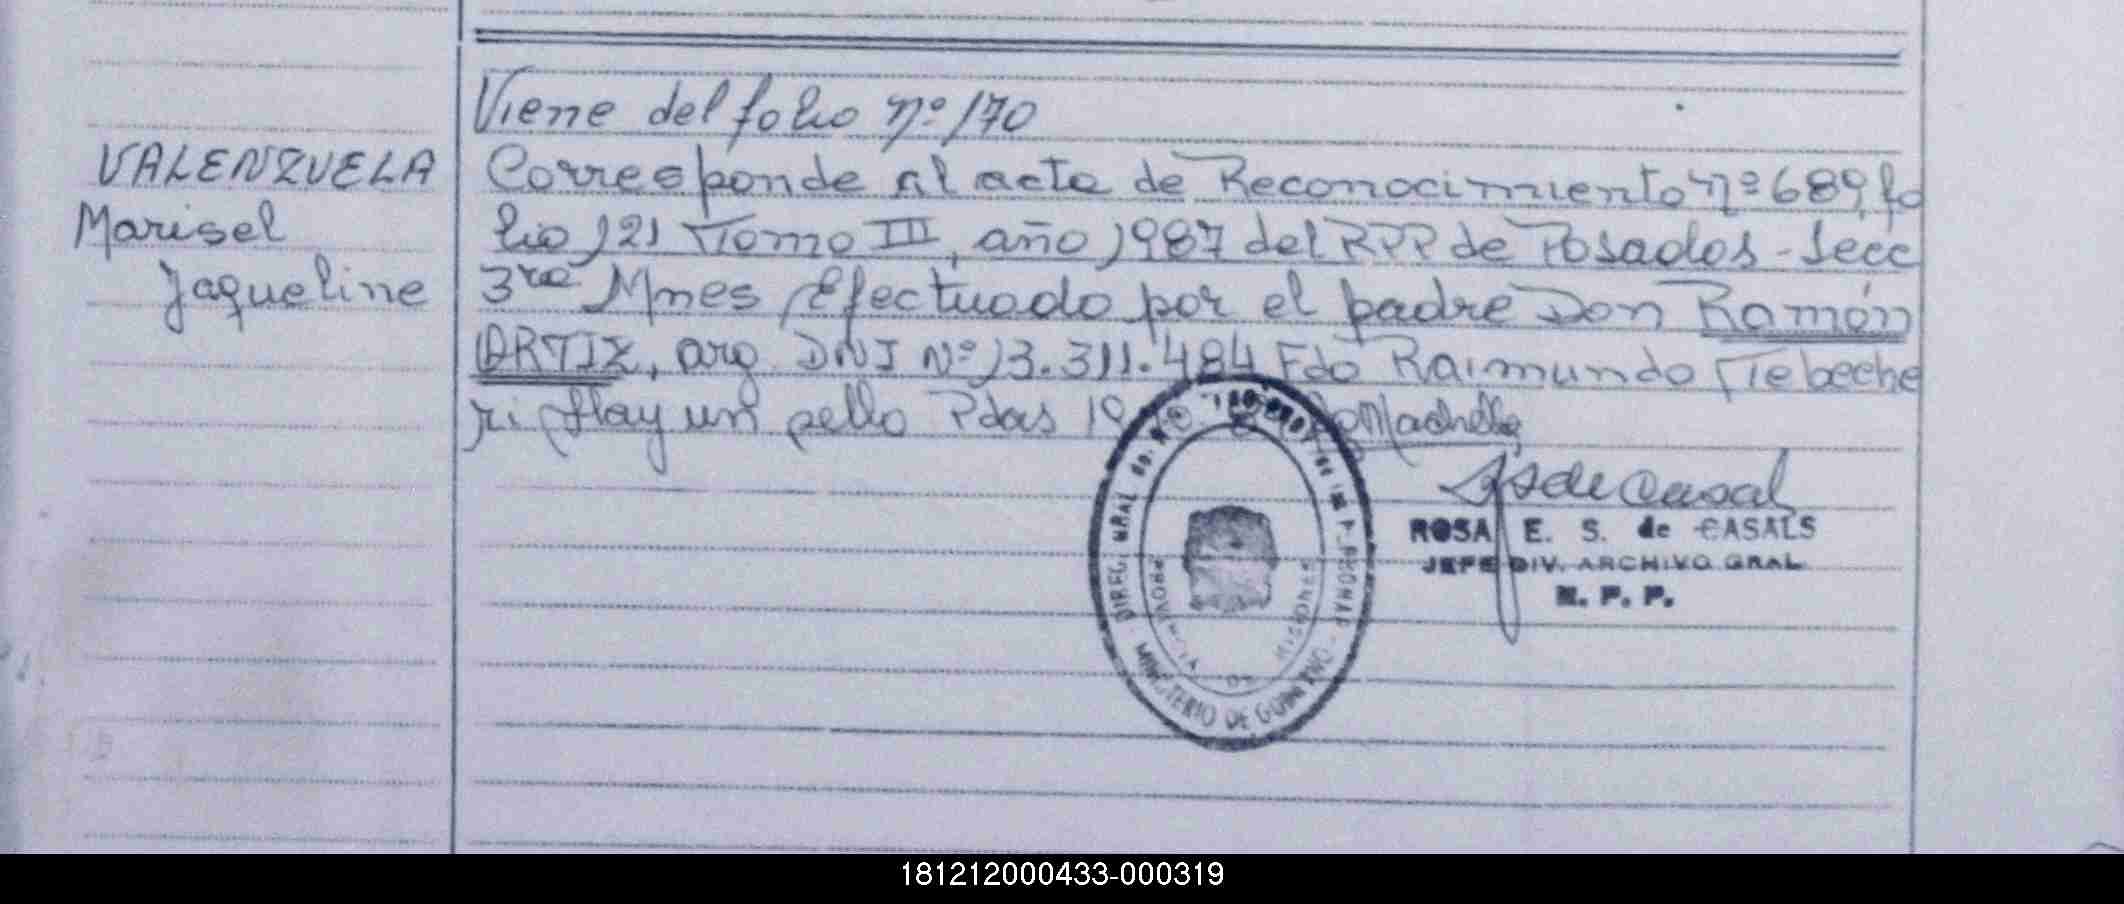 Viene del folio nº 170
VALENZUELA
Marisel
Jaqueline
Corresponde al acta de Reconocimiento nº 689, fo
lio 121 Tomo III, año 1987 del RPP de Posadas - Secc
3ra Mnes, Efectuado por el padre Don Ramón
ORTIZ, arg. DNI Nº 13.311.484 Fdo Raimundo Tiebeche
ri Hay un sello Pdas 19
de Casals
ROSA E. S. de CASALS
JEFE DIV. ARCHIVO GRAL
R. P. P.
MINISTERIO DE GOBIERNO
PROVINCIA DE MISIONES
181212000433-000319